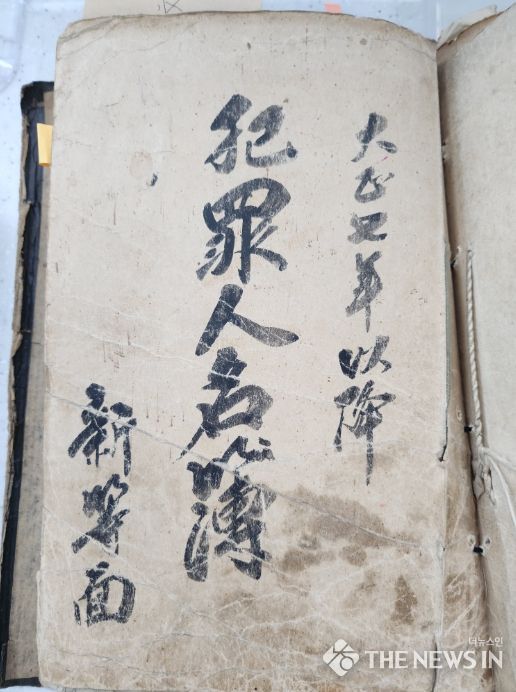 大正七年以降
犯罪人名簿
新等面
더뉴스인
THE NEWS IN